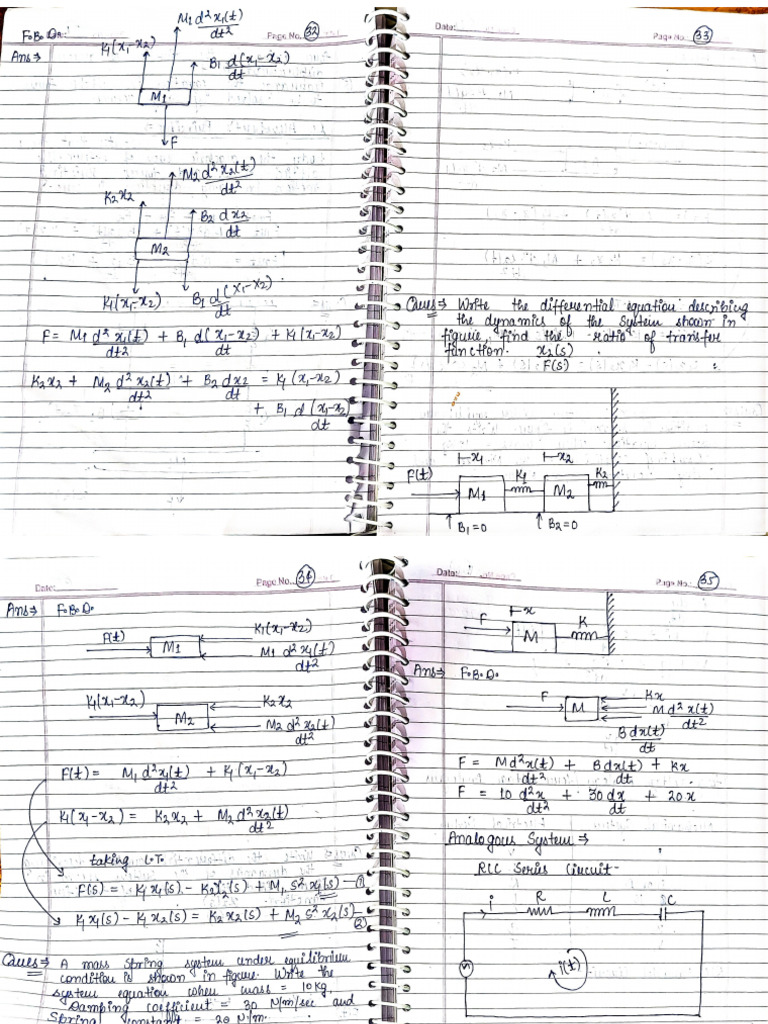 F.B.D.
Page No. 32
Ans⇒
K1(x1-x2)
M1 d²x1(t)/dt²
B1 d(x1-x2)/dt
M1
F
K2x2
M2 d²x2(t)/dt²
B2 dx2/dt
M2
K1(x1-x2)
B1 d(x1-x2)/dt
F = M1 d²x1(t)/dt² + B1 d(x1-x2)/dt + K1(x1-x2)
K2x2 + M2 d²x2(t)/dt² + B2 dx2/dt = K1(x1-x2)
+ B1 d(x1-x2)/dt
Date:
Page No. 33
Ques⇒ Write the differential equation describing
the dynamics of the system shown in
figure, find the ratio of transfer
function. x2(s)/F(s)
x1
x2
F(t)
M1
K1
M2
K2
B1=0
B2=0
Date:
Page No. 34
Ans⇒ F.B.D.
F(t)
M1
K1(x1-x2)
M1 d²x1(t)/dt²
K1(x1-x2)
M2
K2x2
M2 d²x2(t)/dt²
F(t) = M1 d²x1(t)/dt² + K1(x1-x2)
K1(x1-x2) = K2x2 + M2 d²x2(t)/dt²
taking L.T.
F(s) = K1x1(s) - K2x2(s) + M1 s²x1(s) — ①
K1x1(s) - K1x2(s) = K2x2(s) + M2 s²x2(s) — ②
Ques⇒ A mass spring system under equilibrium
condition is shown in figure. Write the
system equation when mass = 10kg
Damping coefficient = 30 N/m/sec and
Spring constant = 20 N/m.
Date:
Page No. 35
F
x
M
K
Ans⇒ F.B.D.
F
M
Kx
M d²x(t)/dt²
B dx(t)/dt
F = M d²x(t)/dt² + B dx(t)/dt + Kx
F = 10 d²x/dt² + 30 dx/dt + 20x
Analogous System⇒
RLC Series Circuit-
i
R
L
C
i(t)